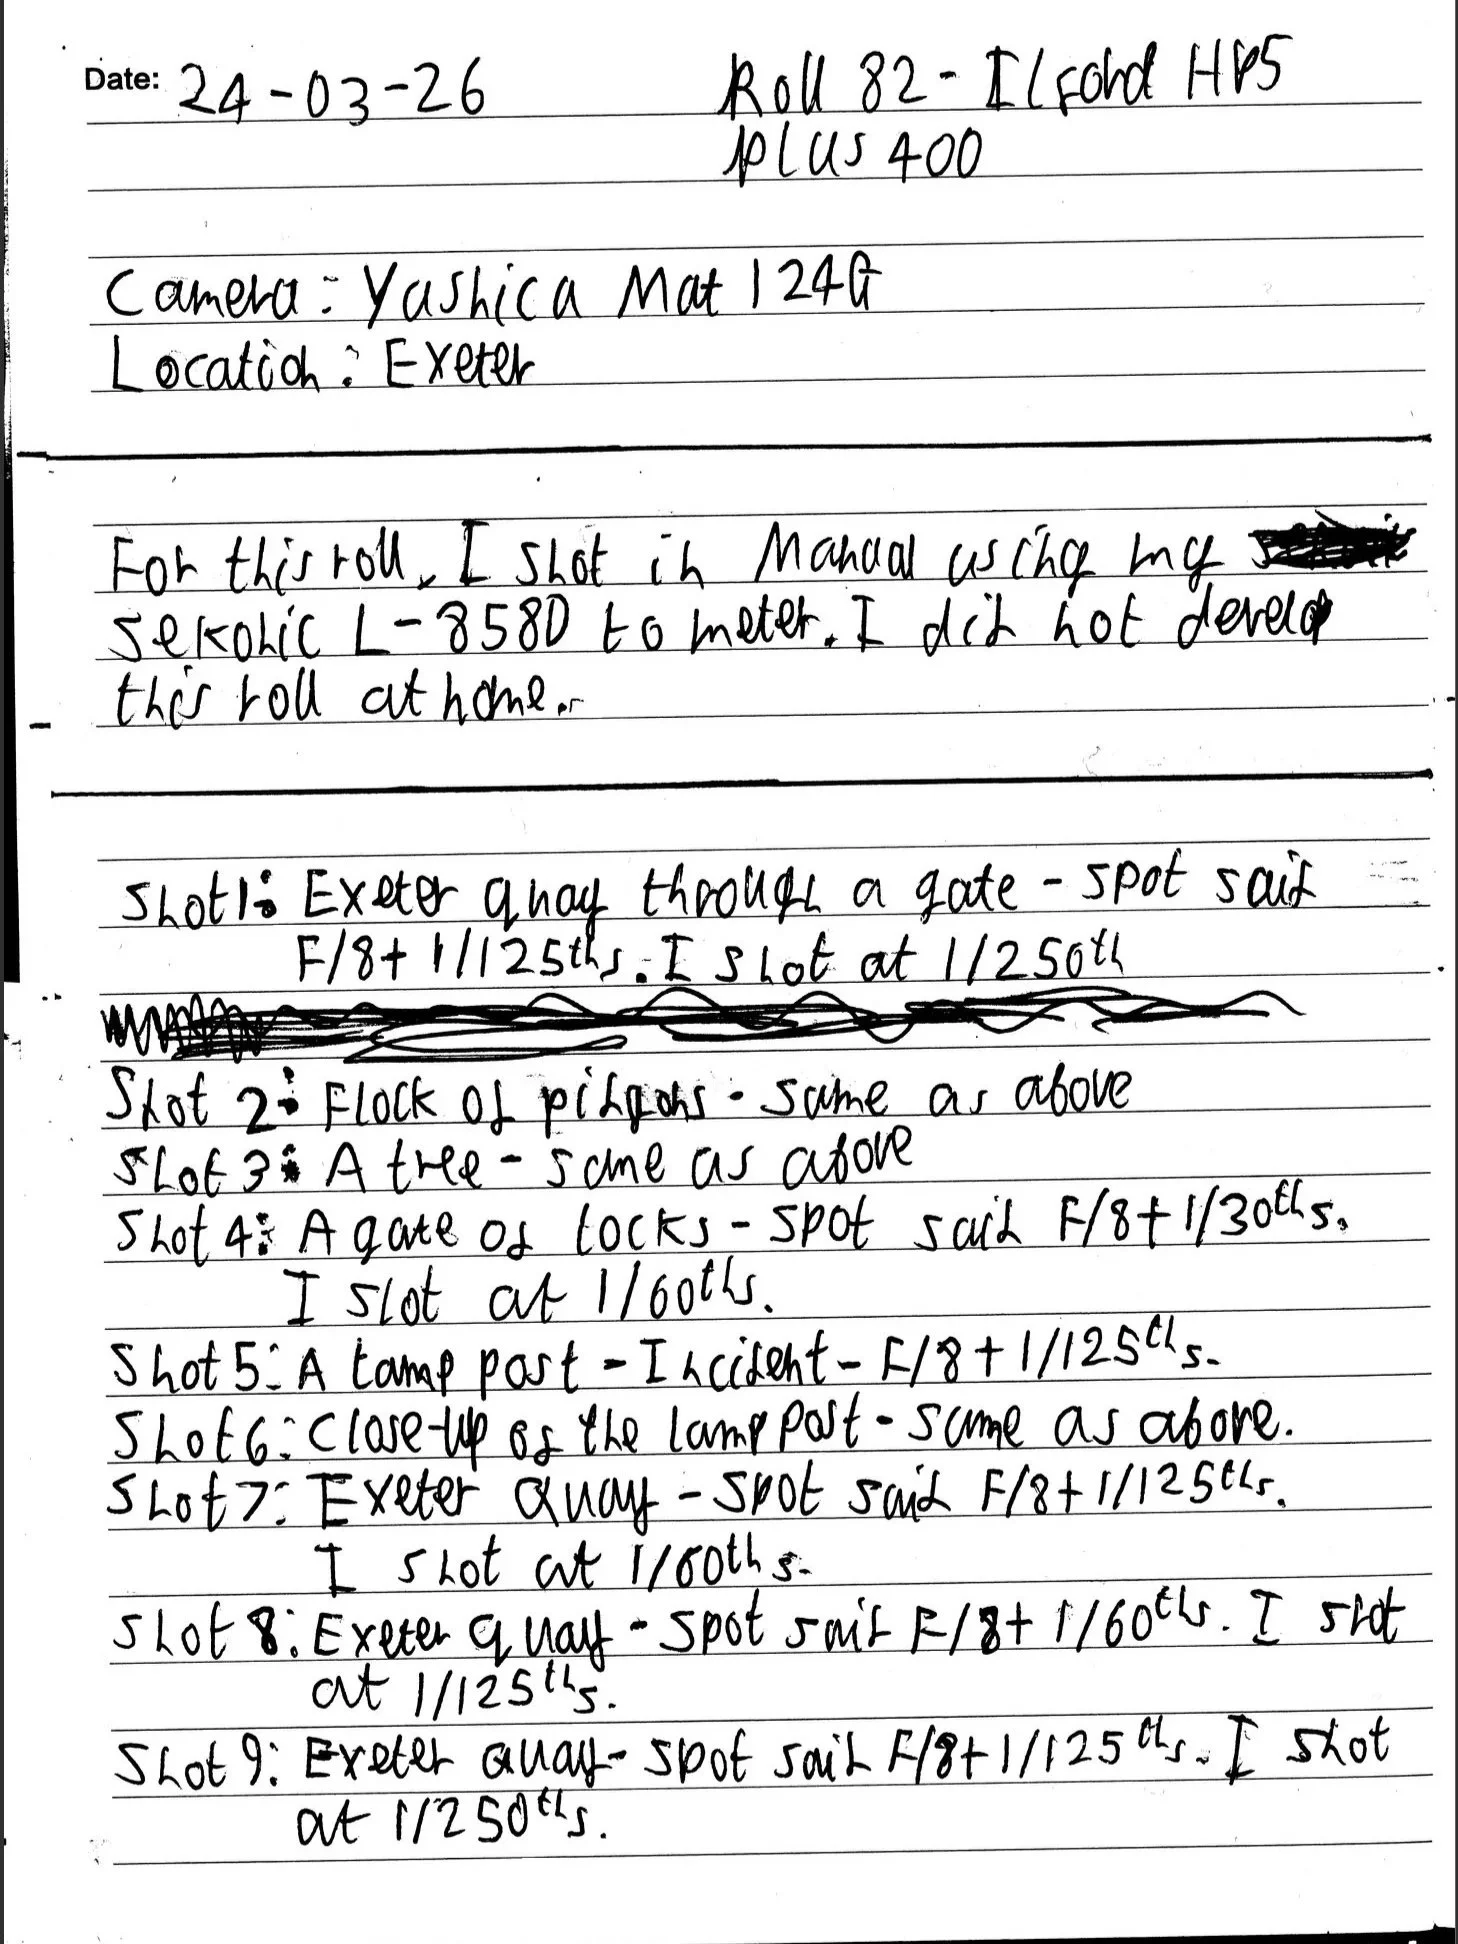 Date: 24-03-26
Roll 82 - Ilford HP5
plus 400
Camera: Yashica Mat 124G
Location: Exeter
For this roll, I shot in Manual using my
Sekonic L-858D to meter. I did not develop
this roll at home.
Shot 1: Exeter quay through a gate - spot said
F/8 + 1/125ths. I shot at 1/250th
Shot 2: Flock of pidgeons - same as above
Shot 3: A tree - same as above
Shot 4: A gate of locks - spot said F/8 + 1/30ths.
I shot at 1/60ths.
Shot 5: A lamp post - Incident - F/8 + 1/125ths.
Shot 6: Close-up of the lamp post - same as above.
Shot 7: Exeter Quay - spot said F/8 + 1/125ths.
I shot at 1/60ths.
Shot 8: Exeter quay - spot said F/8 + 1/60ths. I shot
at 1/125ths.
Shot 9: Exeter Quay - spot said F/8 + 1/125ths. I shot
at 1/250ths.